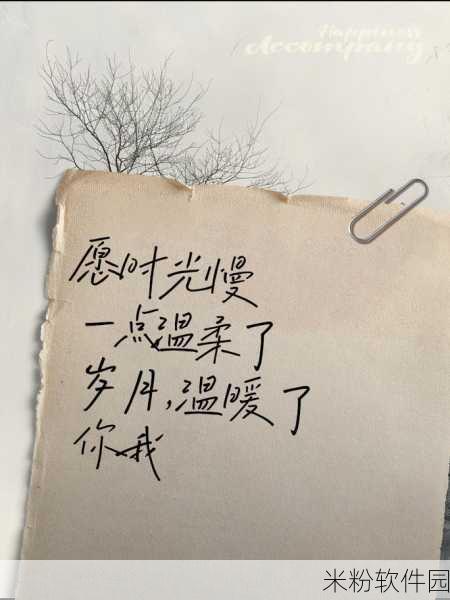 Happiness
Accompany
愿时光慢
一点温柔了
岁月,温暖了
你我
米粉软件园